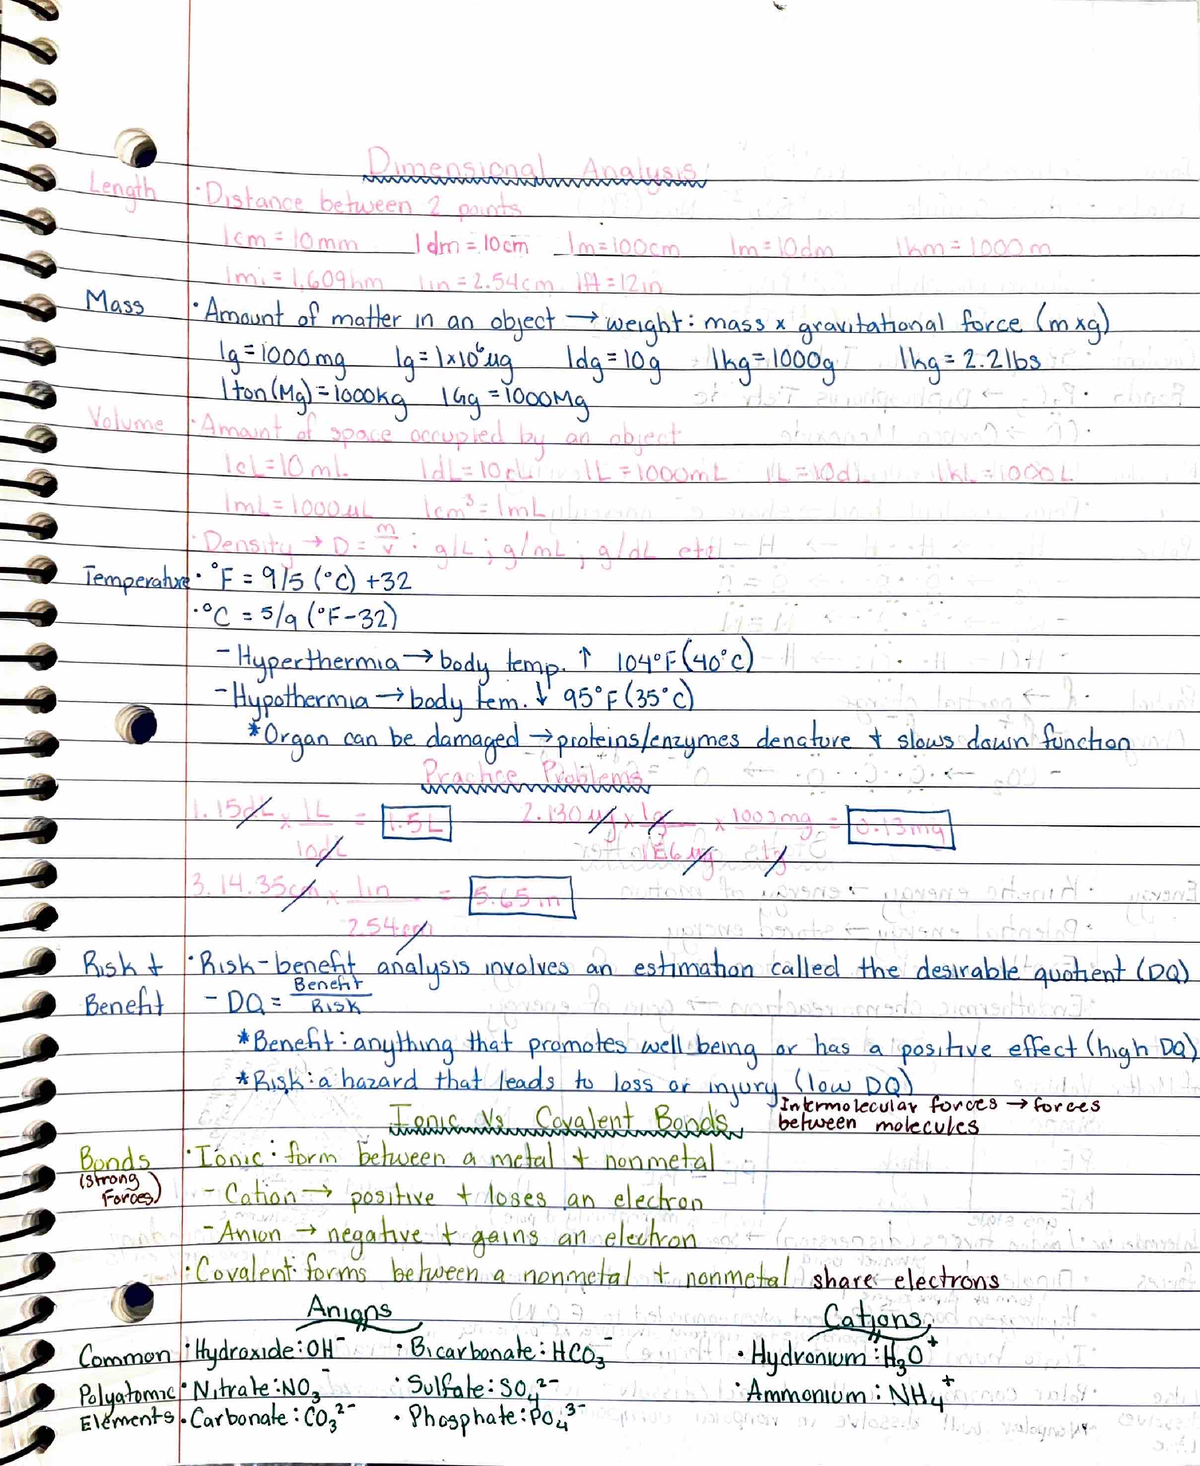 Dimensional Analysis
Length · Distance between 2 points
1cm = 10mm 1dm = 10cm 1m = 100cm 1m = 10dm 1km = 1000m
1mi = 1.609km 1in = 2.54cm 1ft = 12in
Mass · Amount of matter in an object → weight: mass x gravitational force (mxg)
1g = 1000mg 1g = 1x10⁶ug 1dg = 10g 1kg = 1000g 1kg = 2.2lbs
1ton (Mg) = 1000kg 1Gg = 1000Mg
Volume · Amount of space occupied by an object
1cL = 10mL 1dL = 10cL 1L = 1000mL 1L = 10dL 1kL = 1000L
1mL = 1000uL 1cm³ = 1mL
· Density → D = m/v : g/L ; g/mL ; g/dL etc
Temperature · °F = 9/5 (°C) +32
· °C = 5/9 (°F-32)
- Hyperthermia → body temp. ↑ 104°F (40°C)
- Hypothermia → body tem. ↓ 95°F (35°C)
*Organ can be damaged → proteins/enzymes denature + slows down function
Practice Problems
1. 15dL x 1L/10dL = 1.5L 2. 130ug x 1g/1E6ug x 1000mg/1g = 0.13mg
3. 14.35cm x 1in/2.54cm = 5.65in
Risk + · Risk-benefit analysis involves an estimation called the desirable quotient (DQ)
Benefit - DQ = Benefit/Risk
*Benefit: anything that promotes well being or has a positive effect (high DQ)
*Risk: a hazard that leads to loss or injury (low DQ)
Ionic Vs Covalent Bonds
Intermolecular forces → forces
between molecules
Bonds · Ionic: form between a metal + nonmetal
(strong
Forces) - Cation → positive + loses an electron
- Anion → negative + gains an electron
· Covalent: forms between a nonmetal + nonmetal share electrons
Anions Cations
Common · Hydroxide: OH⁻ · Bicarbonate: HCO₃⁻ · Hydronium: H₃O⁺
Polyatomic · Nitrate: NO₃⁻ · Sulfate: SO₄²⁻ · Ammonium: NH₄⁺
Elements · Carbonate: CO₃²⁻ · Phosphate: PO₄³⁻